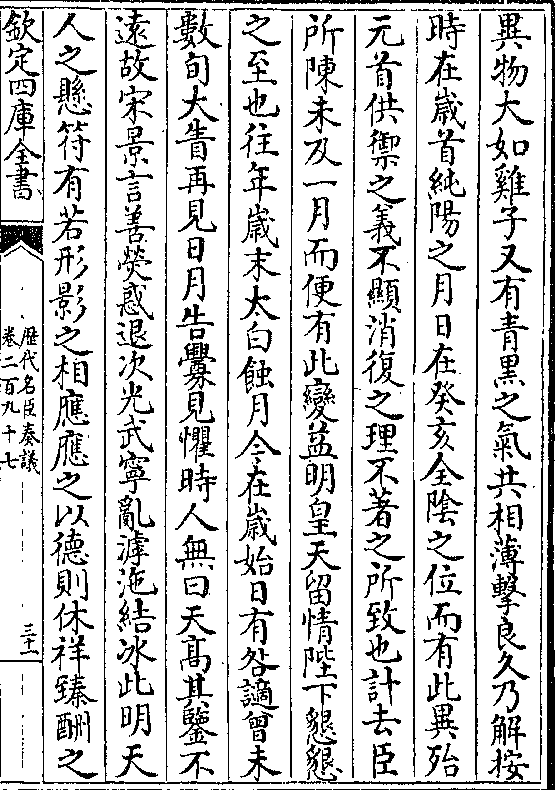 異物大如雞子又有青黒之氣共相薄擊良久乃解按
時在歲首純陽之月日在癸亥全陰之位而有此異殆
元首供禦之義不顯消復之理不著之所致也計去臣
所陳未及一月而便有此變益明皇天留情陛下懇懇
之至也往年歲末太白蝕月今在歲始日有咎謫曾未
數旬大眚再見日月告釁見懼時人無曰天髙其鑒不
遠故宋景言善熒惑退次光武寧亂滹沲結冰此明天
人之懸符有若形影之相應應之以德則休祥臻酬之
欽定四庫全書
歴代名臣奏議
卷二百九十七
三十一